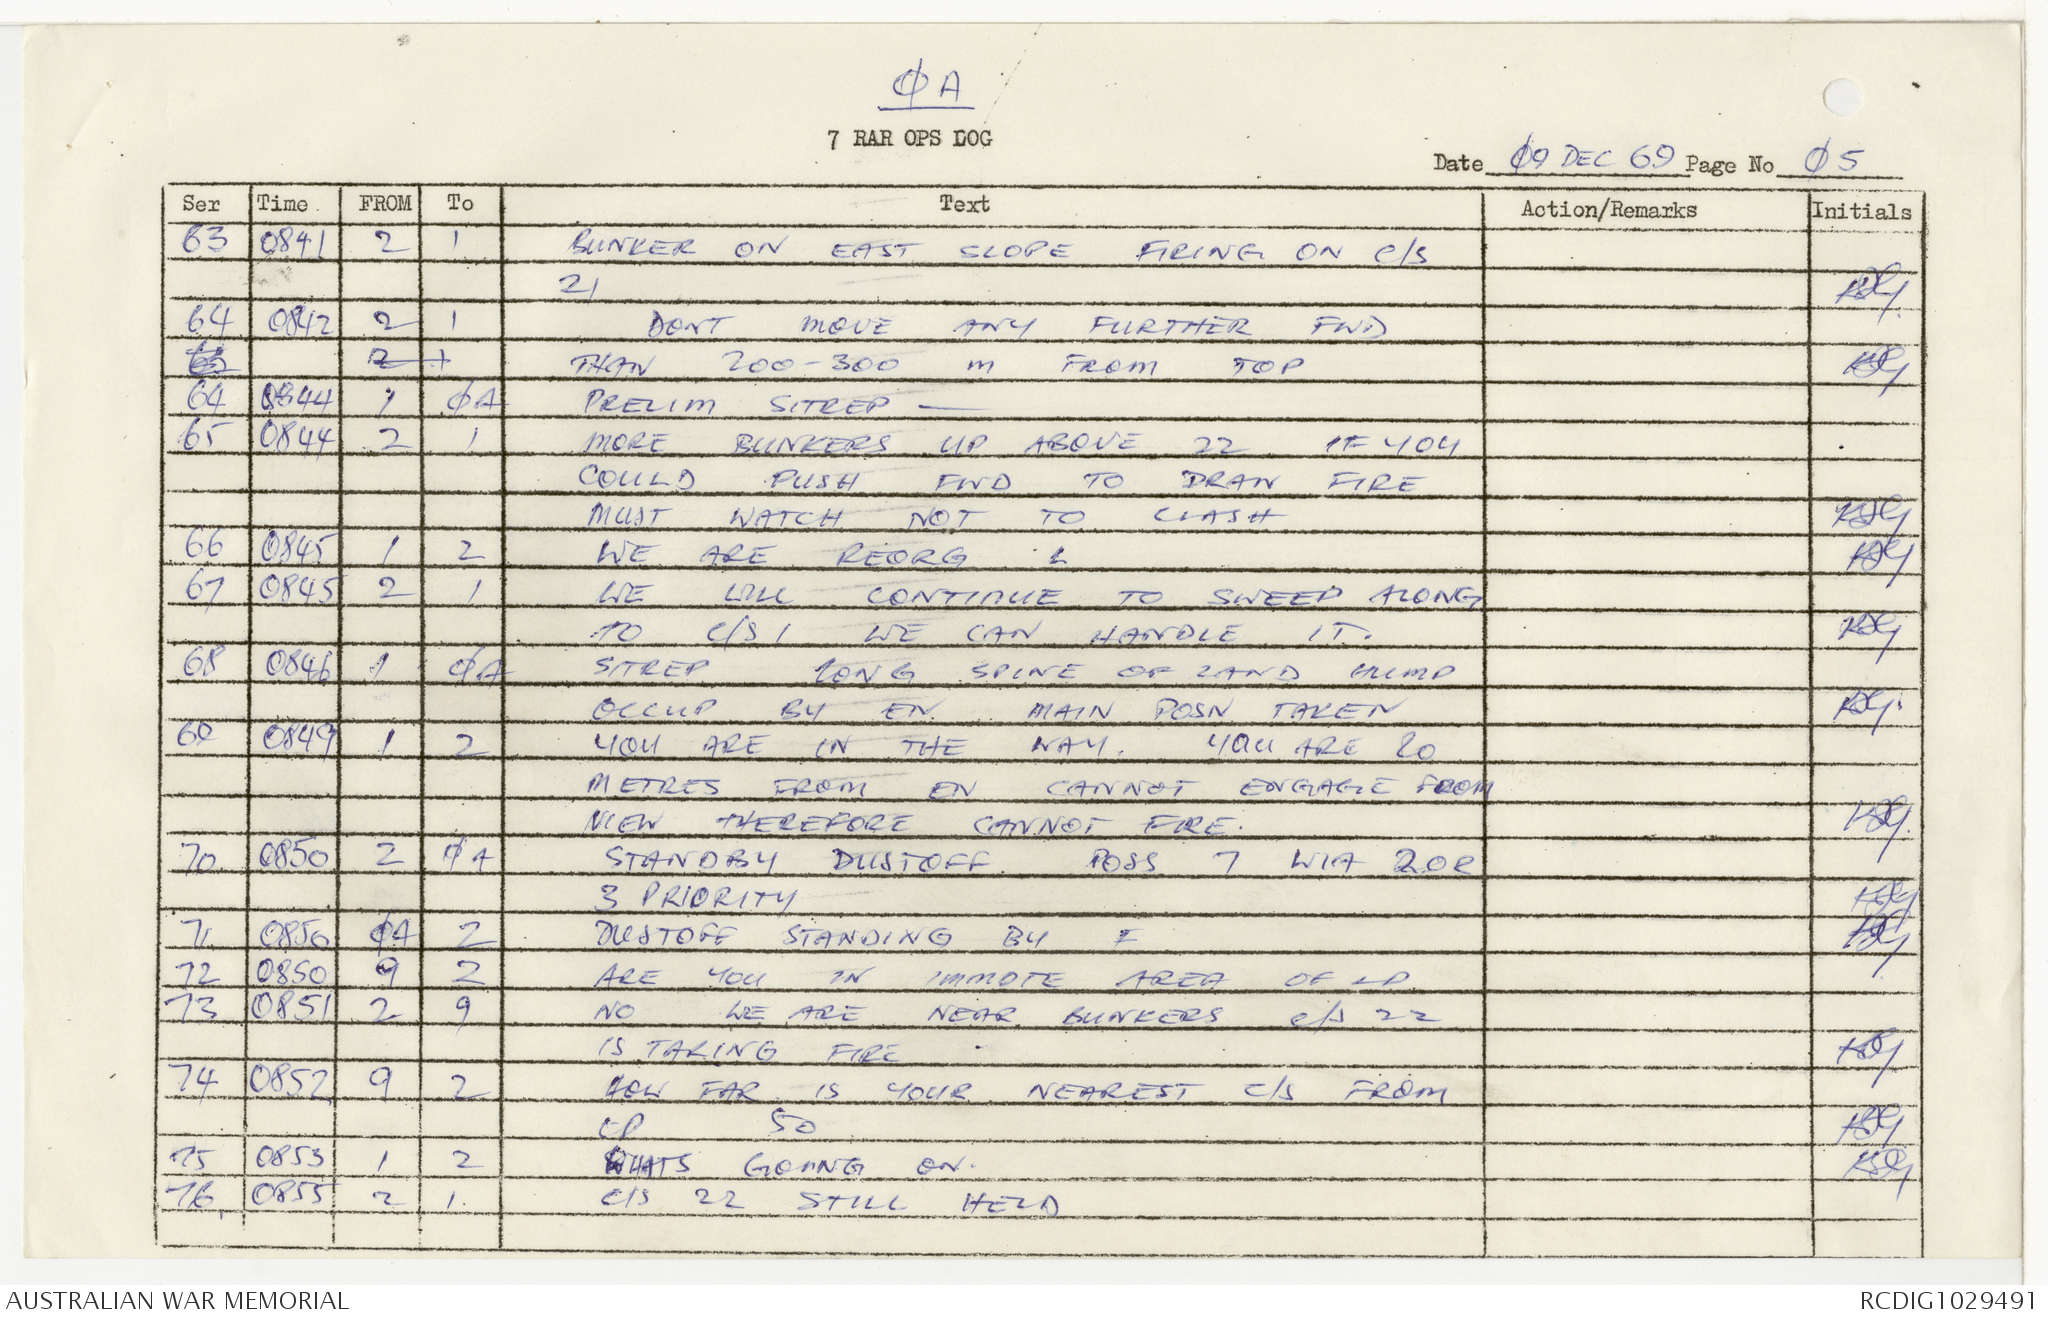 ØA
7 RAR OPS LOG
Date Ø9 DEC 69 Page No Ø5
Ser Time FROM To Text Action/Remarks Initials
63 0841 2 1 BUNKER ON EAST SLOPE FIRING ON C/S
21
64 0842 2 1 DONT MOVE ANY FURTHER FWD
2 1 THAN 200-300 m FROM TOP
64 0844 1 ØA PRELIM SITREP —
65 0844 2 1 MORE BUNKERS UP ABOVE 22 IF YOU
COULD PUSH FWD TO DRAW FIRE
MUST WATCH NOT TO CLASH
66 0845 1 2 WE ARE REORG
67 0845 2 1 WE WILL CONTINUE TO SWEEP ALONG
TO C/S 1 WE CAN HANDLE IT.
68 0846 1 ØA SITREP LONG SPINE OF LAND HUMP
OCCUP BY EN MAIN POSN TAKEN
69 0849 1 2 YOU ARE IN THE WAY. YOU ARE 20
METRES FROM EN CANNOT ENGAGE FROM
VIEW THEREFORE CANNOT FIRE.
70 0850 2 ØA STANDBY DUSTOFF POSS 7 WIA 2 OR
3 PRIORITY
71 0850 ØA 2 DUSTOFF STANDING BY
72 0850 9 2 ARE YOU IN IMMDTE AREA OF LP
73 0851 2 9 NO WE ARE NEAR BUNKERS C/S 22
IS TAKING FIRE
74 0852 9 2 HOW FAR IS YOUR NEAREST C/S FROM
LP 50
75 0853 1 2 WHATS GOING ON.
76 0855 2 1. C/S 22 STILL HELD
AUSTRALIAN WAR MEMORIAL RCDIG1029491